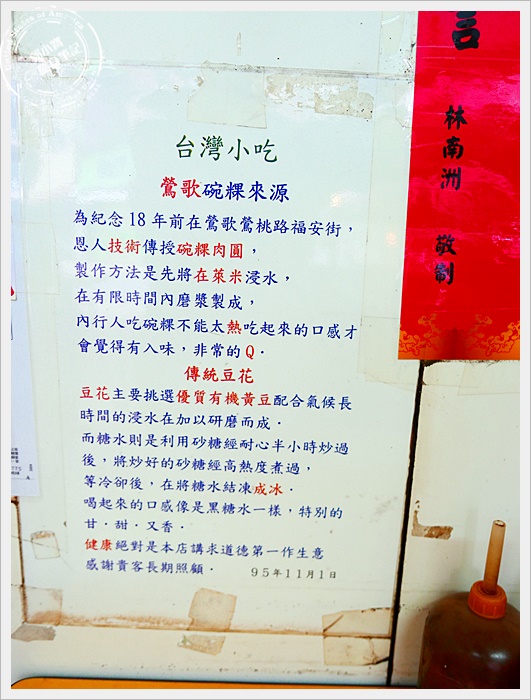 台灣小吃
鶯歌碗粿來源
為紀念18年前在鶯歌鶯桃路福安街，
恩人技術傳授碗粿肉圓，
製作方法是先將在萊米浸水，
在有限時間內磨漿製成，
內行人吃碗粿不能太熱吃起來的口感才
會覺得有入味，非常的Q．
傳統豆花
豆花主要挑選優質有機黃豆配合氣候長
時間的浸水在加以研磨而成．
而糖水則是利用砂糖經耐心半小時炒過
後，將炒好的砂糖經高熱度煮過，
等冷卻後，在將糖水結凍成冰．
喝起來的口感像是黑糖水一樣，特別的
甘．甜．又香．
健康絕對是本店講求道德第一作生意
感謝貴客長期照顧．
95年11月1日
言
林南洲 敬制